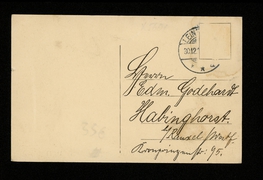 Herrn
Edm. Godehardt
Habinghorst.
b/Rauxel i/Westf.
Kronprinzenstr. 95.
30.12.